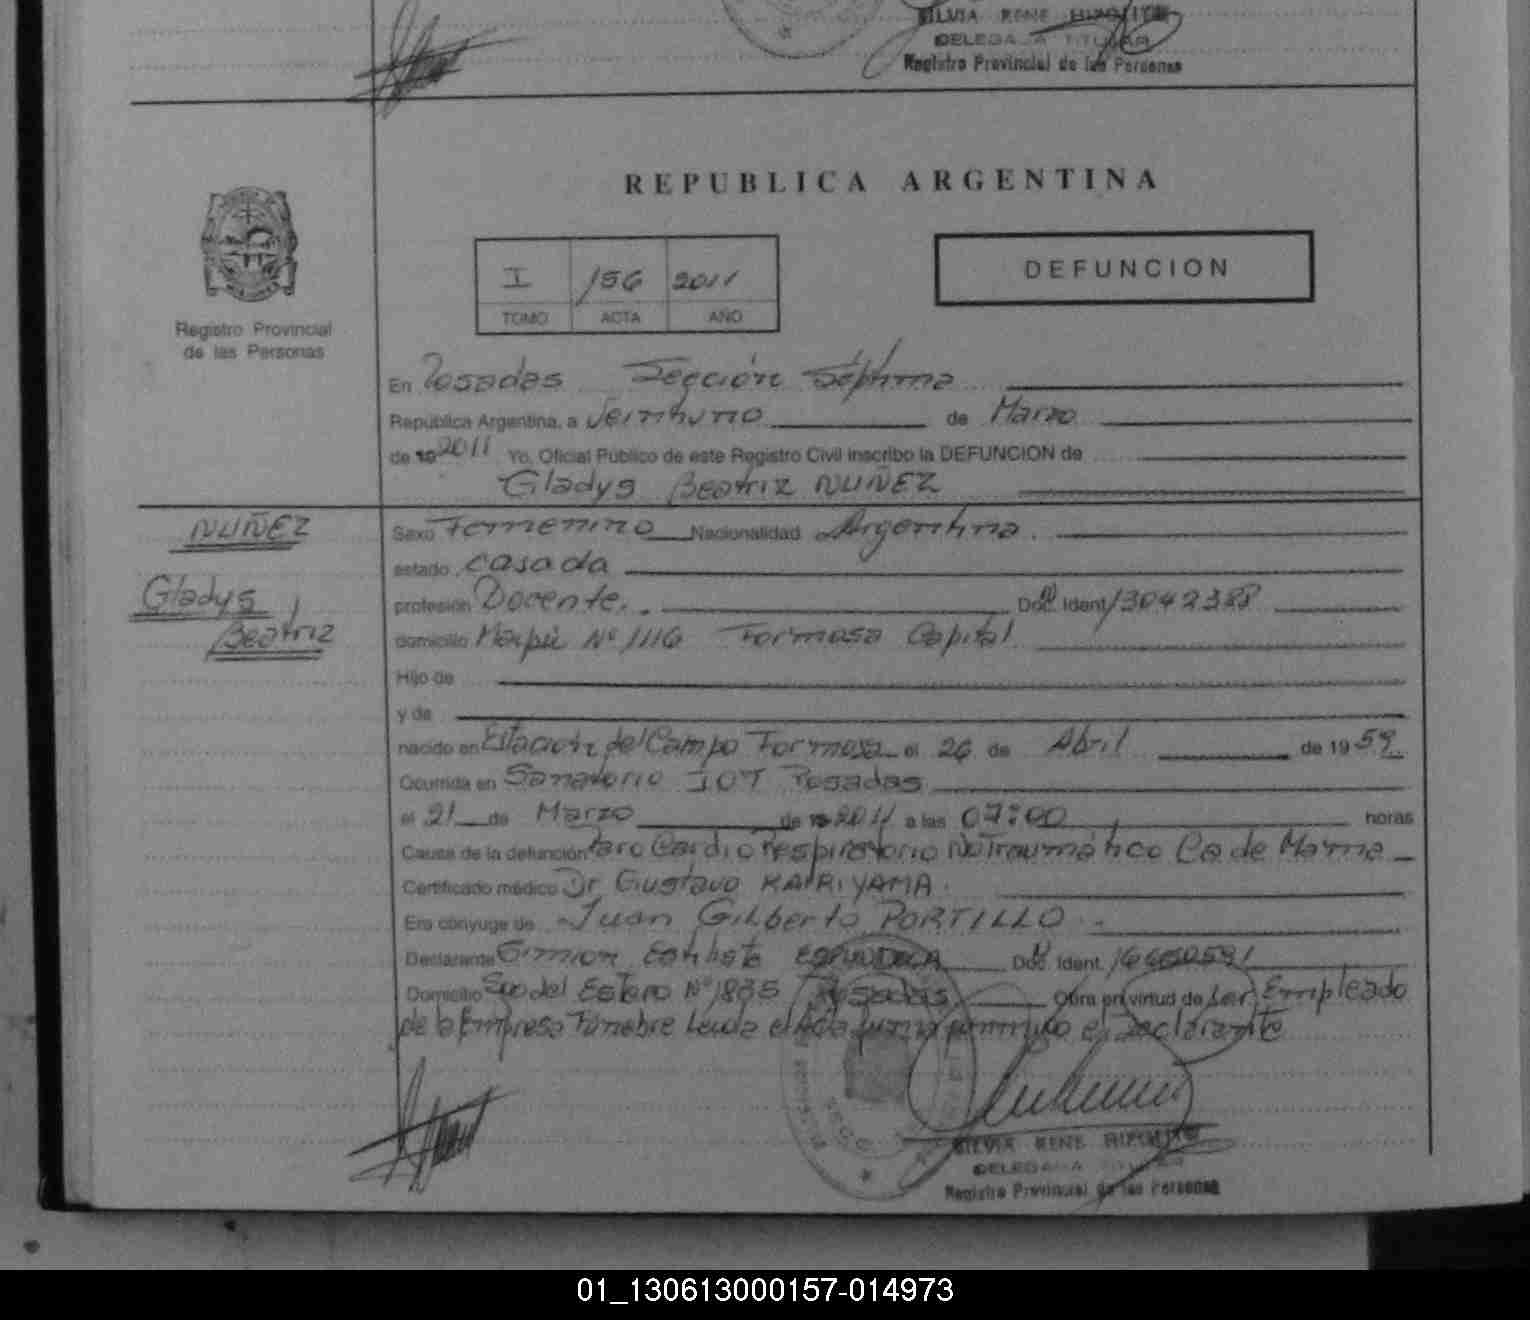 SILVIA RENE HIPOLITO
DELEGADA TITULAR
Registro Provincial de las Personas
REPUBLICA ARGENTINA
I 156 2011
TOMO ACTA AÑO
DEFUNCION
Registro Provincial
de las Personas
En Posadas Sección Séptima
República Argentina, a Veintiuno de Marzo
de 19 2011 Yo, Oficial Público de este Registro Civil inscribo la DEFUNCION de
Gladys Beatriz NUÑEZ
NUÑEZ
Gladys
Beatriz
Sexo Femenino Nacionalidad Argentina
estado casada
profesión Docente. Doc. Ident. 13042388
domicilio Maipú Nº 1116 Formosa Capital
Hijo de
y de
nacido en Estación del Campo Formosa el 26 de Abril de 19 59
Ocurrida en Sanatorio IOT Posadas
el 21 de Marzo de 19 2011 a las 07:00 horas
Causa de la defunción Paro Cardio Respiratorio No Traumático Ca de Mama
Certificado médico Dr Gustavo
Era cónyuge de Juan Gilberto PORTILLO
Declarante ESPINDOLA Doc. Ident.
Domicilio Sgo del Estero Nº 1835 Posadas Obra en virtud de ser Empleado
de la Empresa Fúnebre Leída el Acta firma conmigo el Declarante
SILVIA RENE HIPOLITO
DELEGADA TITULAR
Registro Provincial de las Personas
01_130613000157-014973